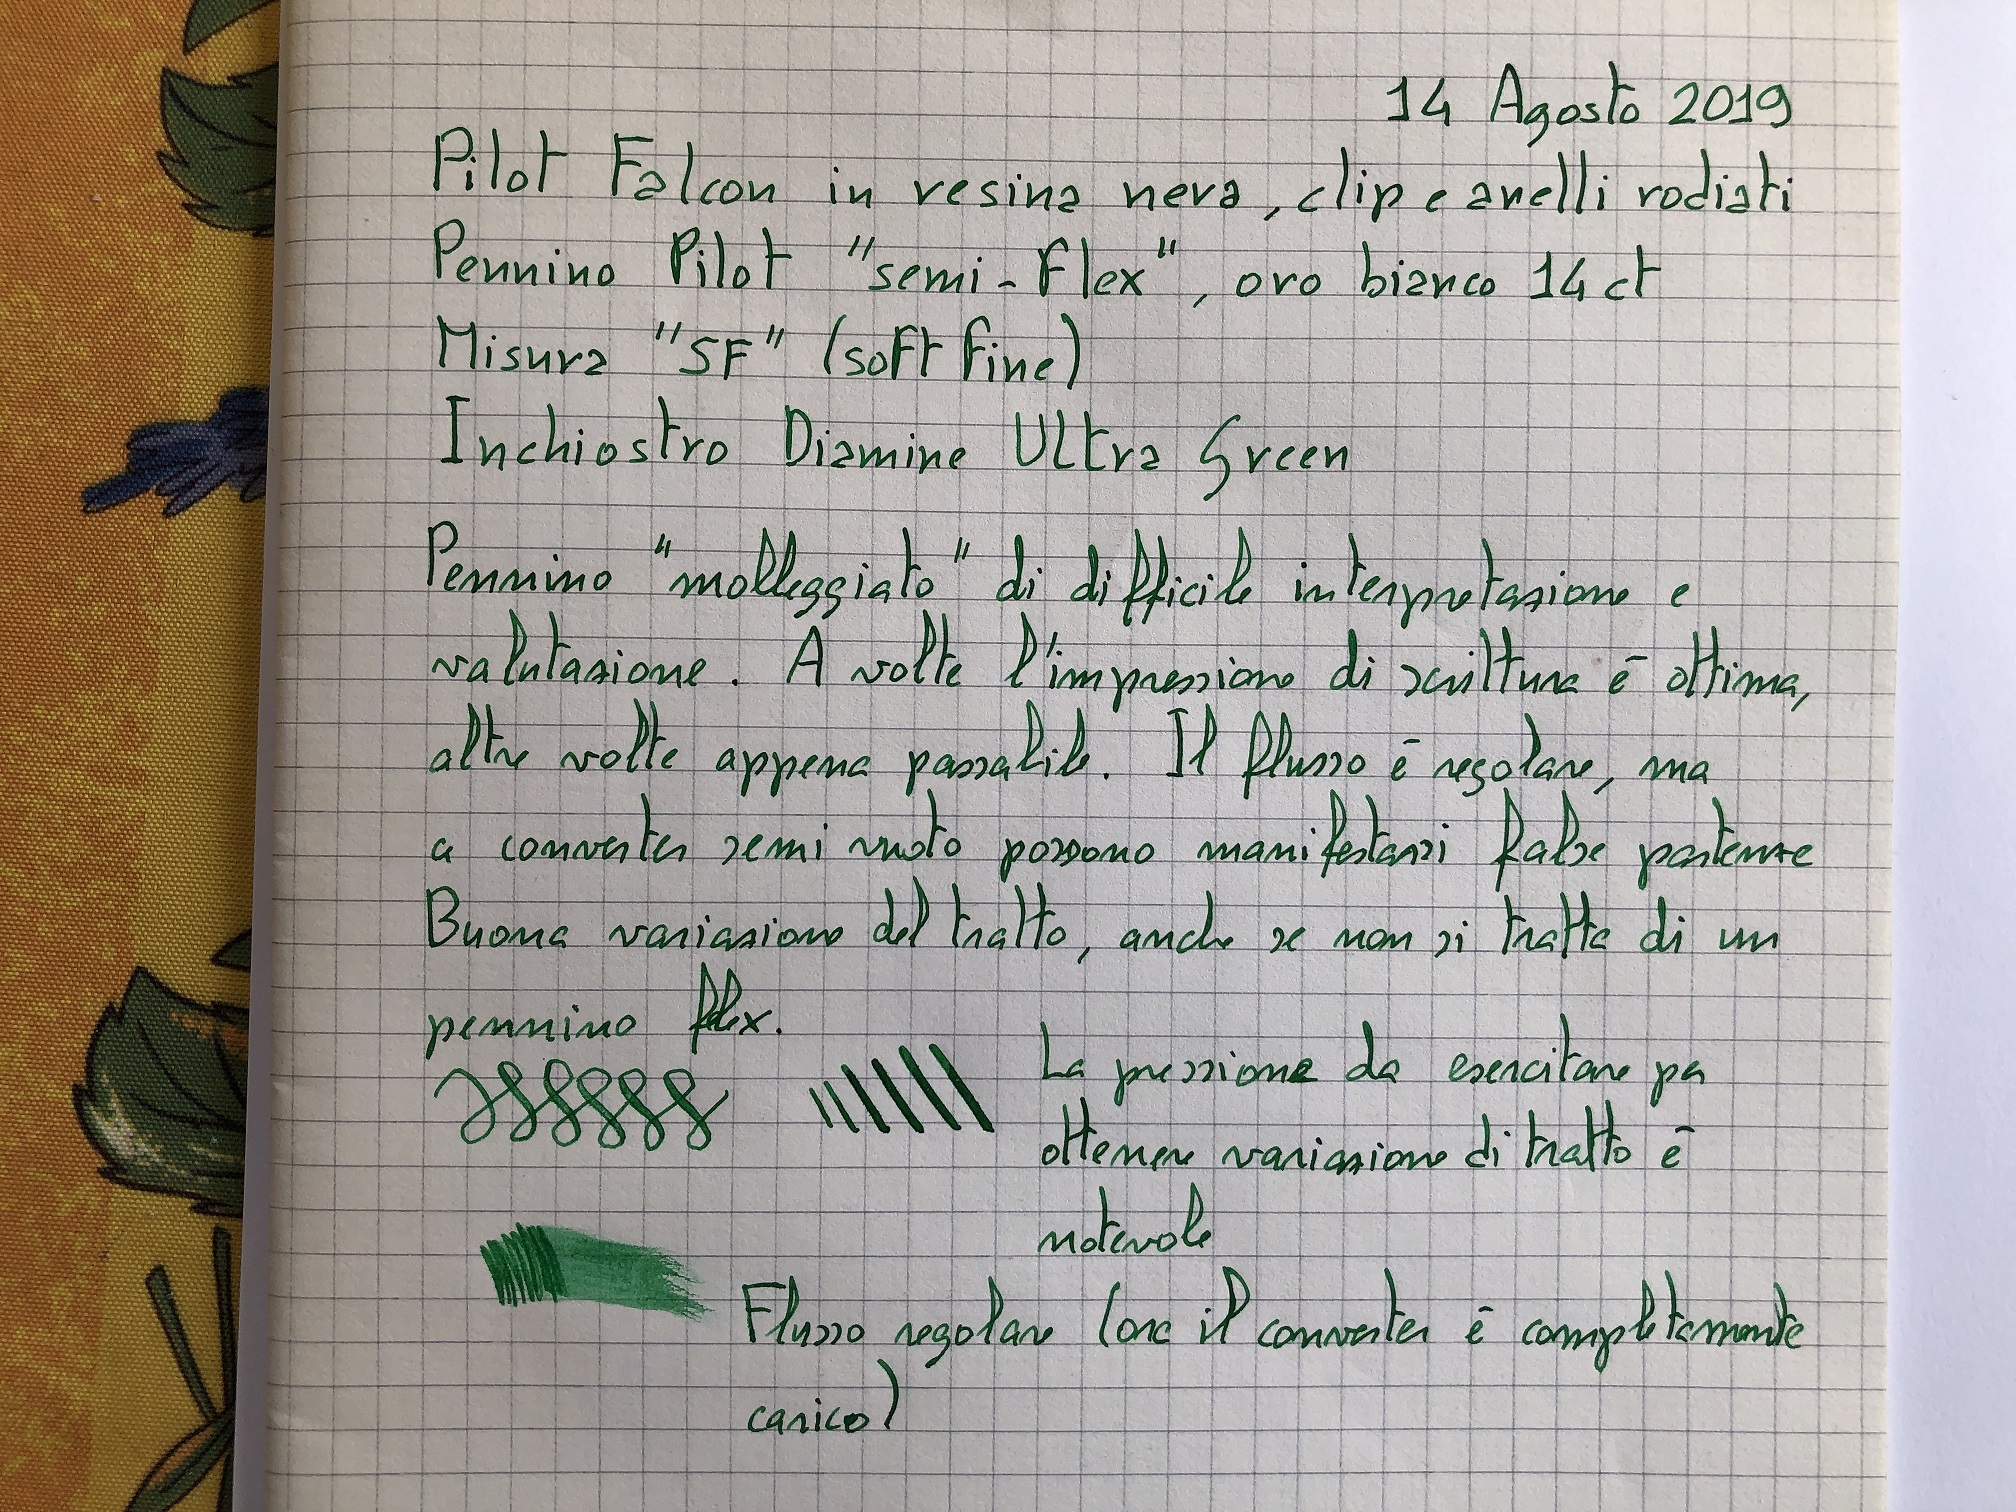 14 Agosto 2019
Pilot Falcon in resina nera, clip e anelli rodiati
Pennino Pilot "semi-flex", oro bianco 14 ct
Misura "SF" (soft fine)
Inchiostro Diamine Ultra Green
Pennino "molleggiato" di difficile interpretazione e
valutazione. A volte l'impressione di scrittura è ottima,
altre volte appena passabile. Il flusso è regolare, ma
a converter semi vuoto possono manifestarsi false partenze
Buona variazione del tratto, anche se non si tratta di un
pennino flex.
La pressione da esercitare per
ottenere variazione di tratto è
notevole
Flusso regolare (ora il converter è completamente
carico)